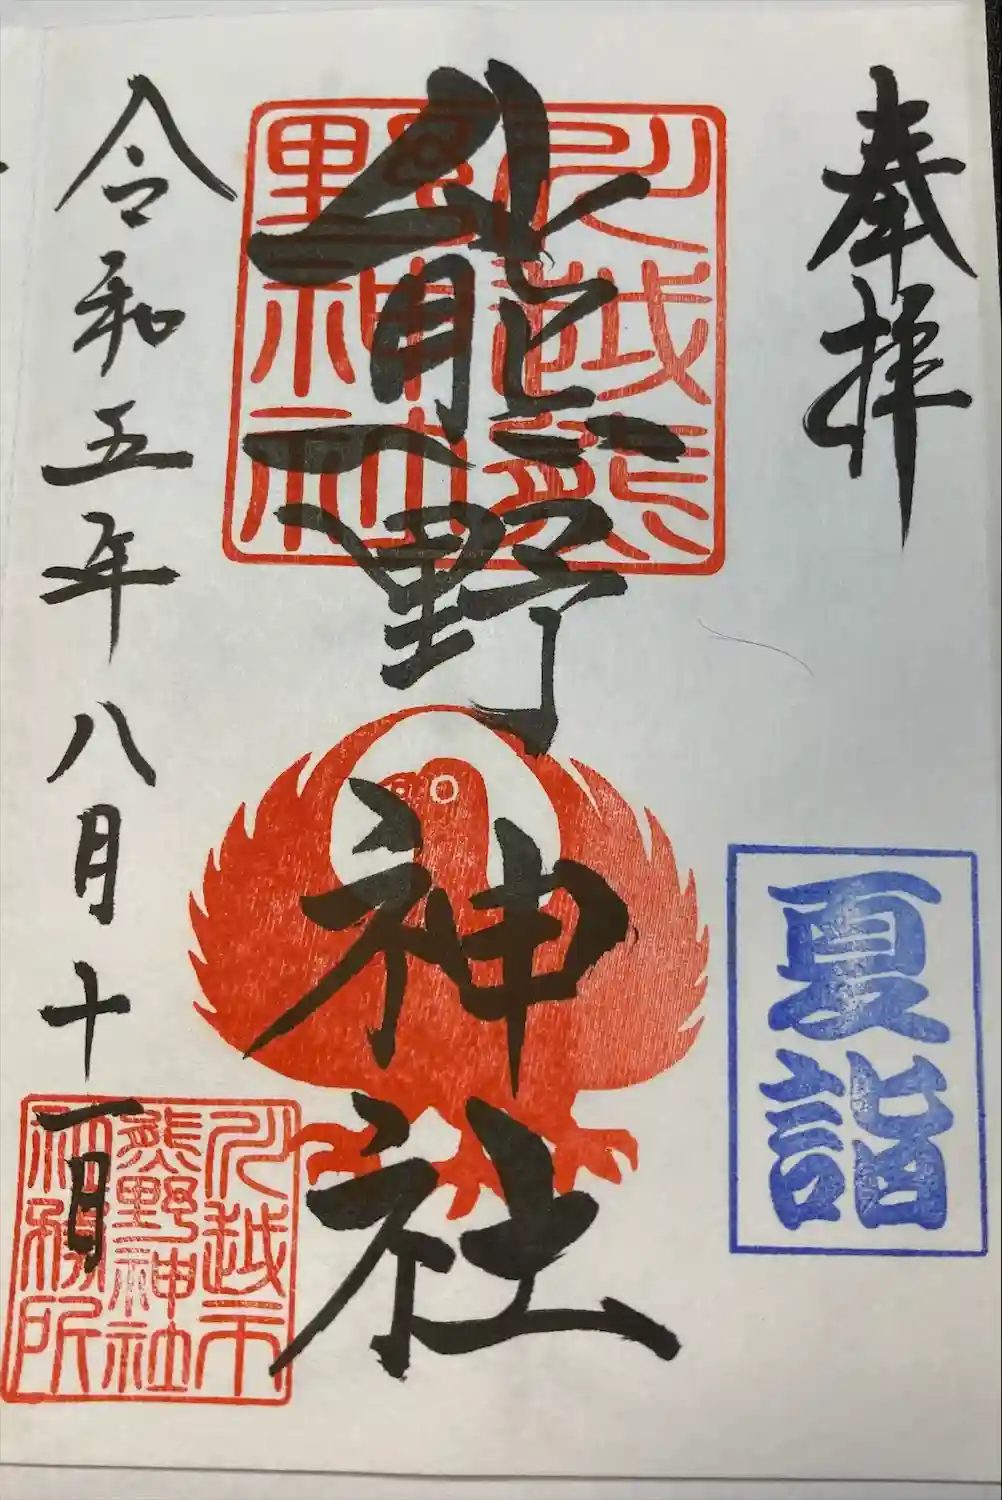 奉拝
夏詣
熊野神社
川越熊
野神社
令和五年八月十一日
川越市
熊野神社
社務所